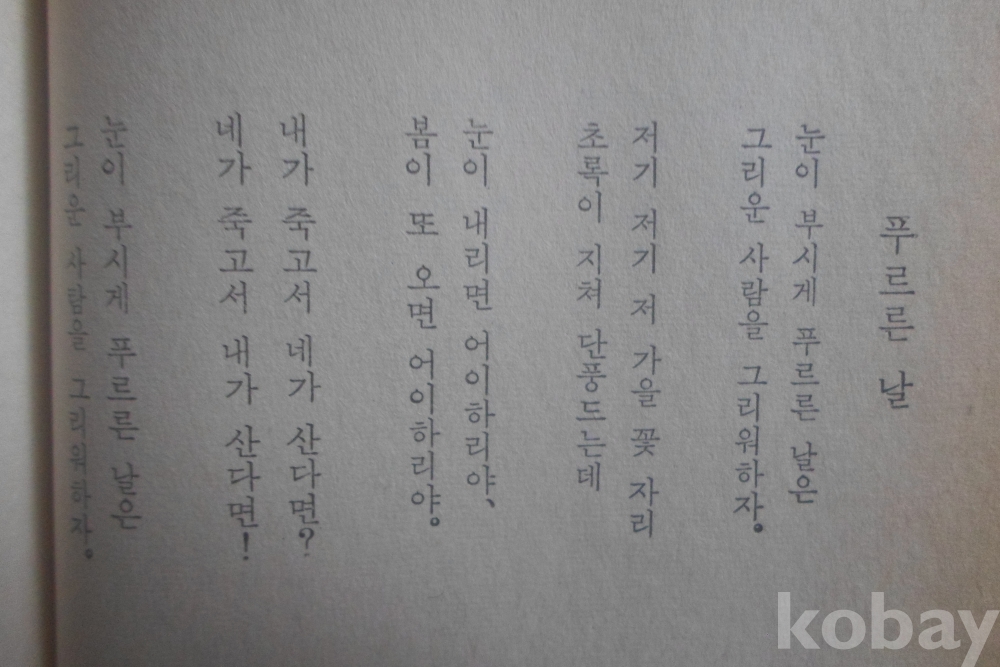 푸르른 날
눈이 부시게 푸르른 날은
그리운 사람을 그리워하자。
저기 저기 저 가을 꽃 자리
초록이 지쳐 단풍드는데
눈이 내리면 어이하리야、
봄이 또 오면 어이하리야。
내가 죽고서 네가 산다면?
네가 죽고서 내가 산다면!
눈이 부시게 푸르른 날은
그리운 사람을 그리워하자。
kobay